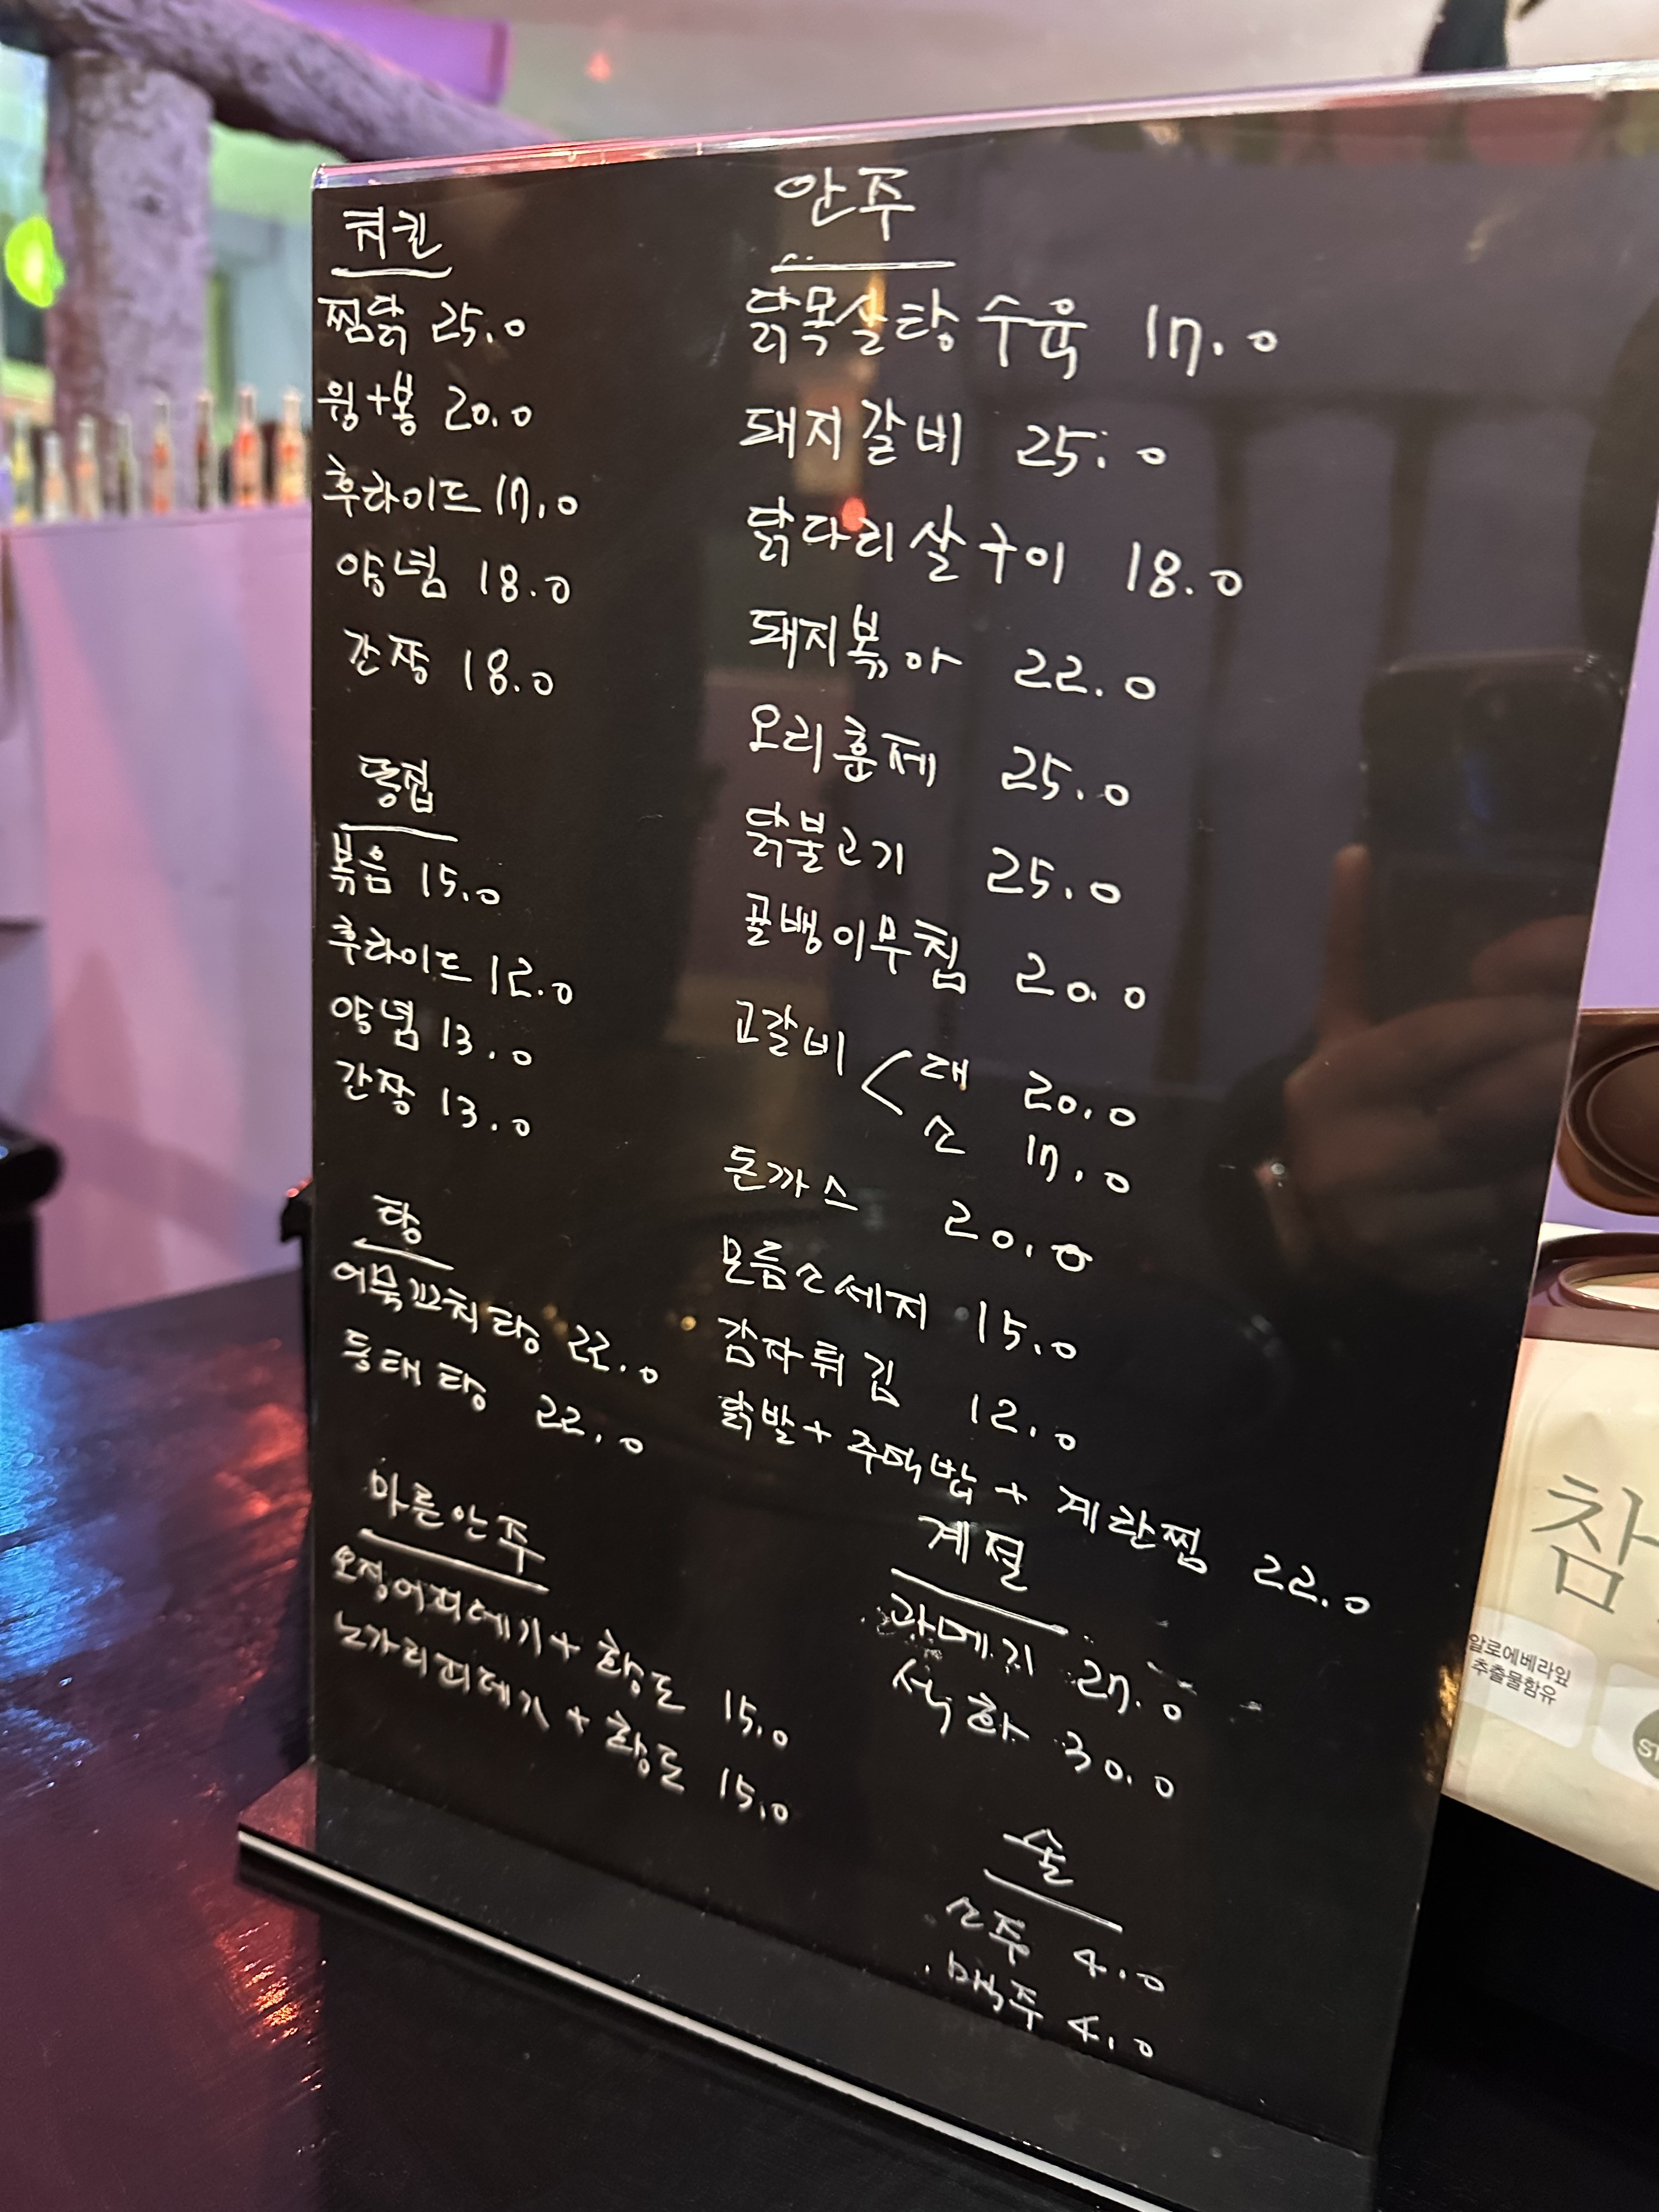 치킨
찜닭 25.0
윙+봉 20.0
후라이드 17.0
양념 18.0
간장 18.0
똥집
볶음 15.0
후라이드 12.0
양념 13.0
간장 13.0
탕
어묵꼬치탕 22.0
동태탕 22.0
마른안주
오징어피데기+황도 15.0
노가리피데기+황도 15.0
안주
닭목살탕수육 17.0
돼지갈비 25.0
닭다리살구이 18.0
돼지볶아 22.0
오리훈제 25.0
닭불고기 25.0
골뱅이무침 20.0
고갈비 < 대 20.0
소 17.0
돈까스 20.0
모듬소세지 15.0
감자튀김 12.0
닭발+주먹밥+계란찜 22.0
계절
과메기 27.0
석화 30.0
술
소주 4.0
맥주 4.0
참
알로에베라잎
추출물함유